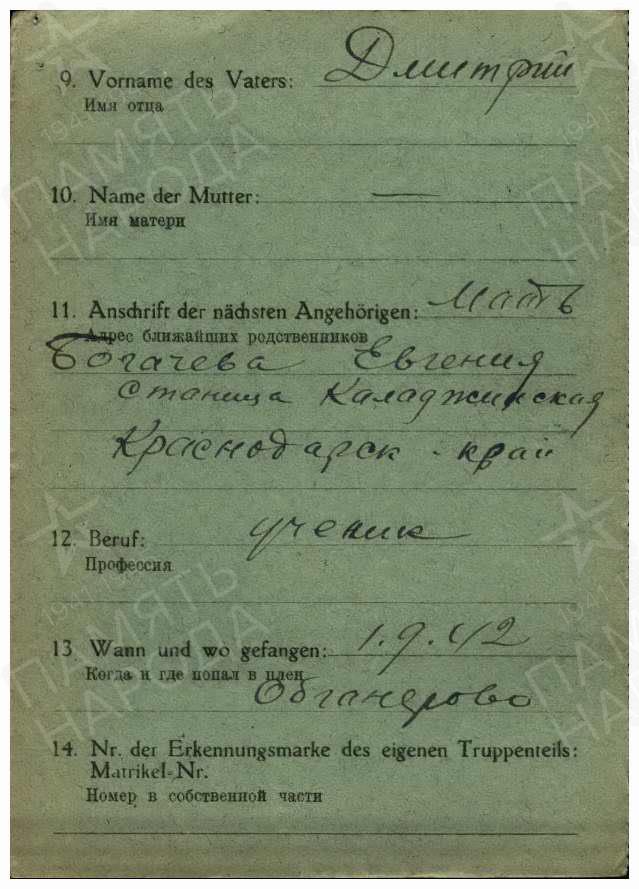 9. Vorname des Vaters: Дмитрий
Имя отца
10. Name der Mutter: —
Имя матери
11. Anschrift der nächsten Angehörigen: Мать
Адрес ближайших родственников
Богачева Евгения
Станица Каладжинская
Краснодарск - край
12. Beruf: ученик
Профессия
13 Wann und wo gefangen: 1.9.42
Когда и где попал в плен
Обганерово
14. Nr. der Erkennungsmarke des eigenen Truppenteils:
Matrikel-Nr.
Номер в собственной части
ПАМЯТЬ
НАРОДА